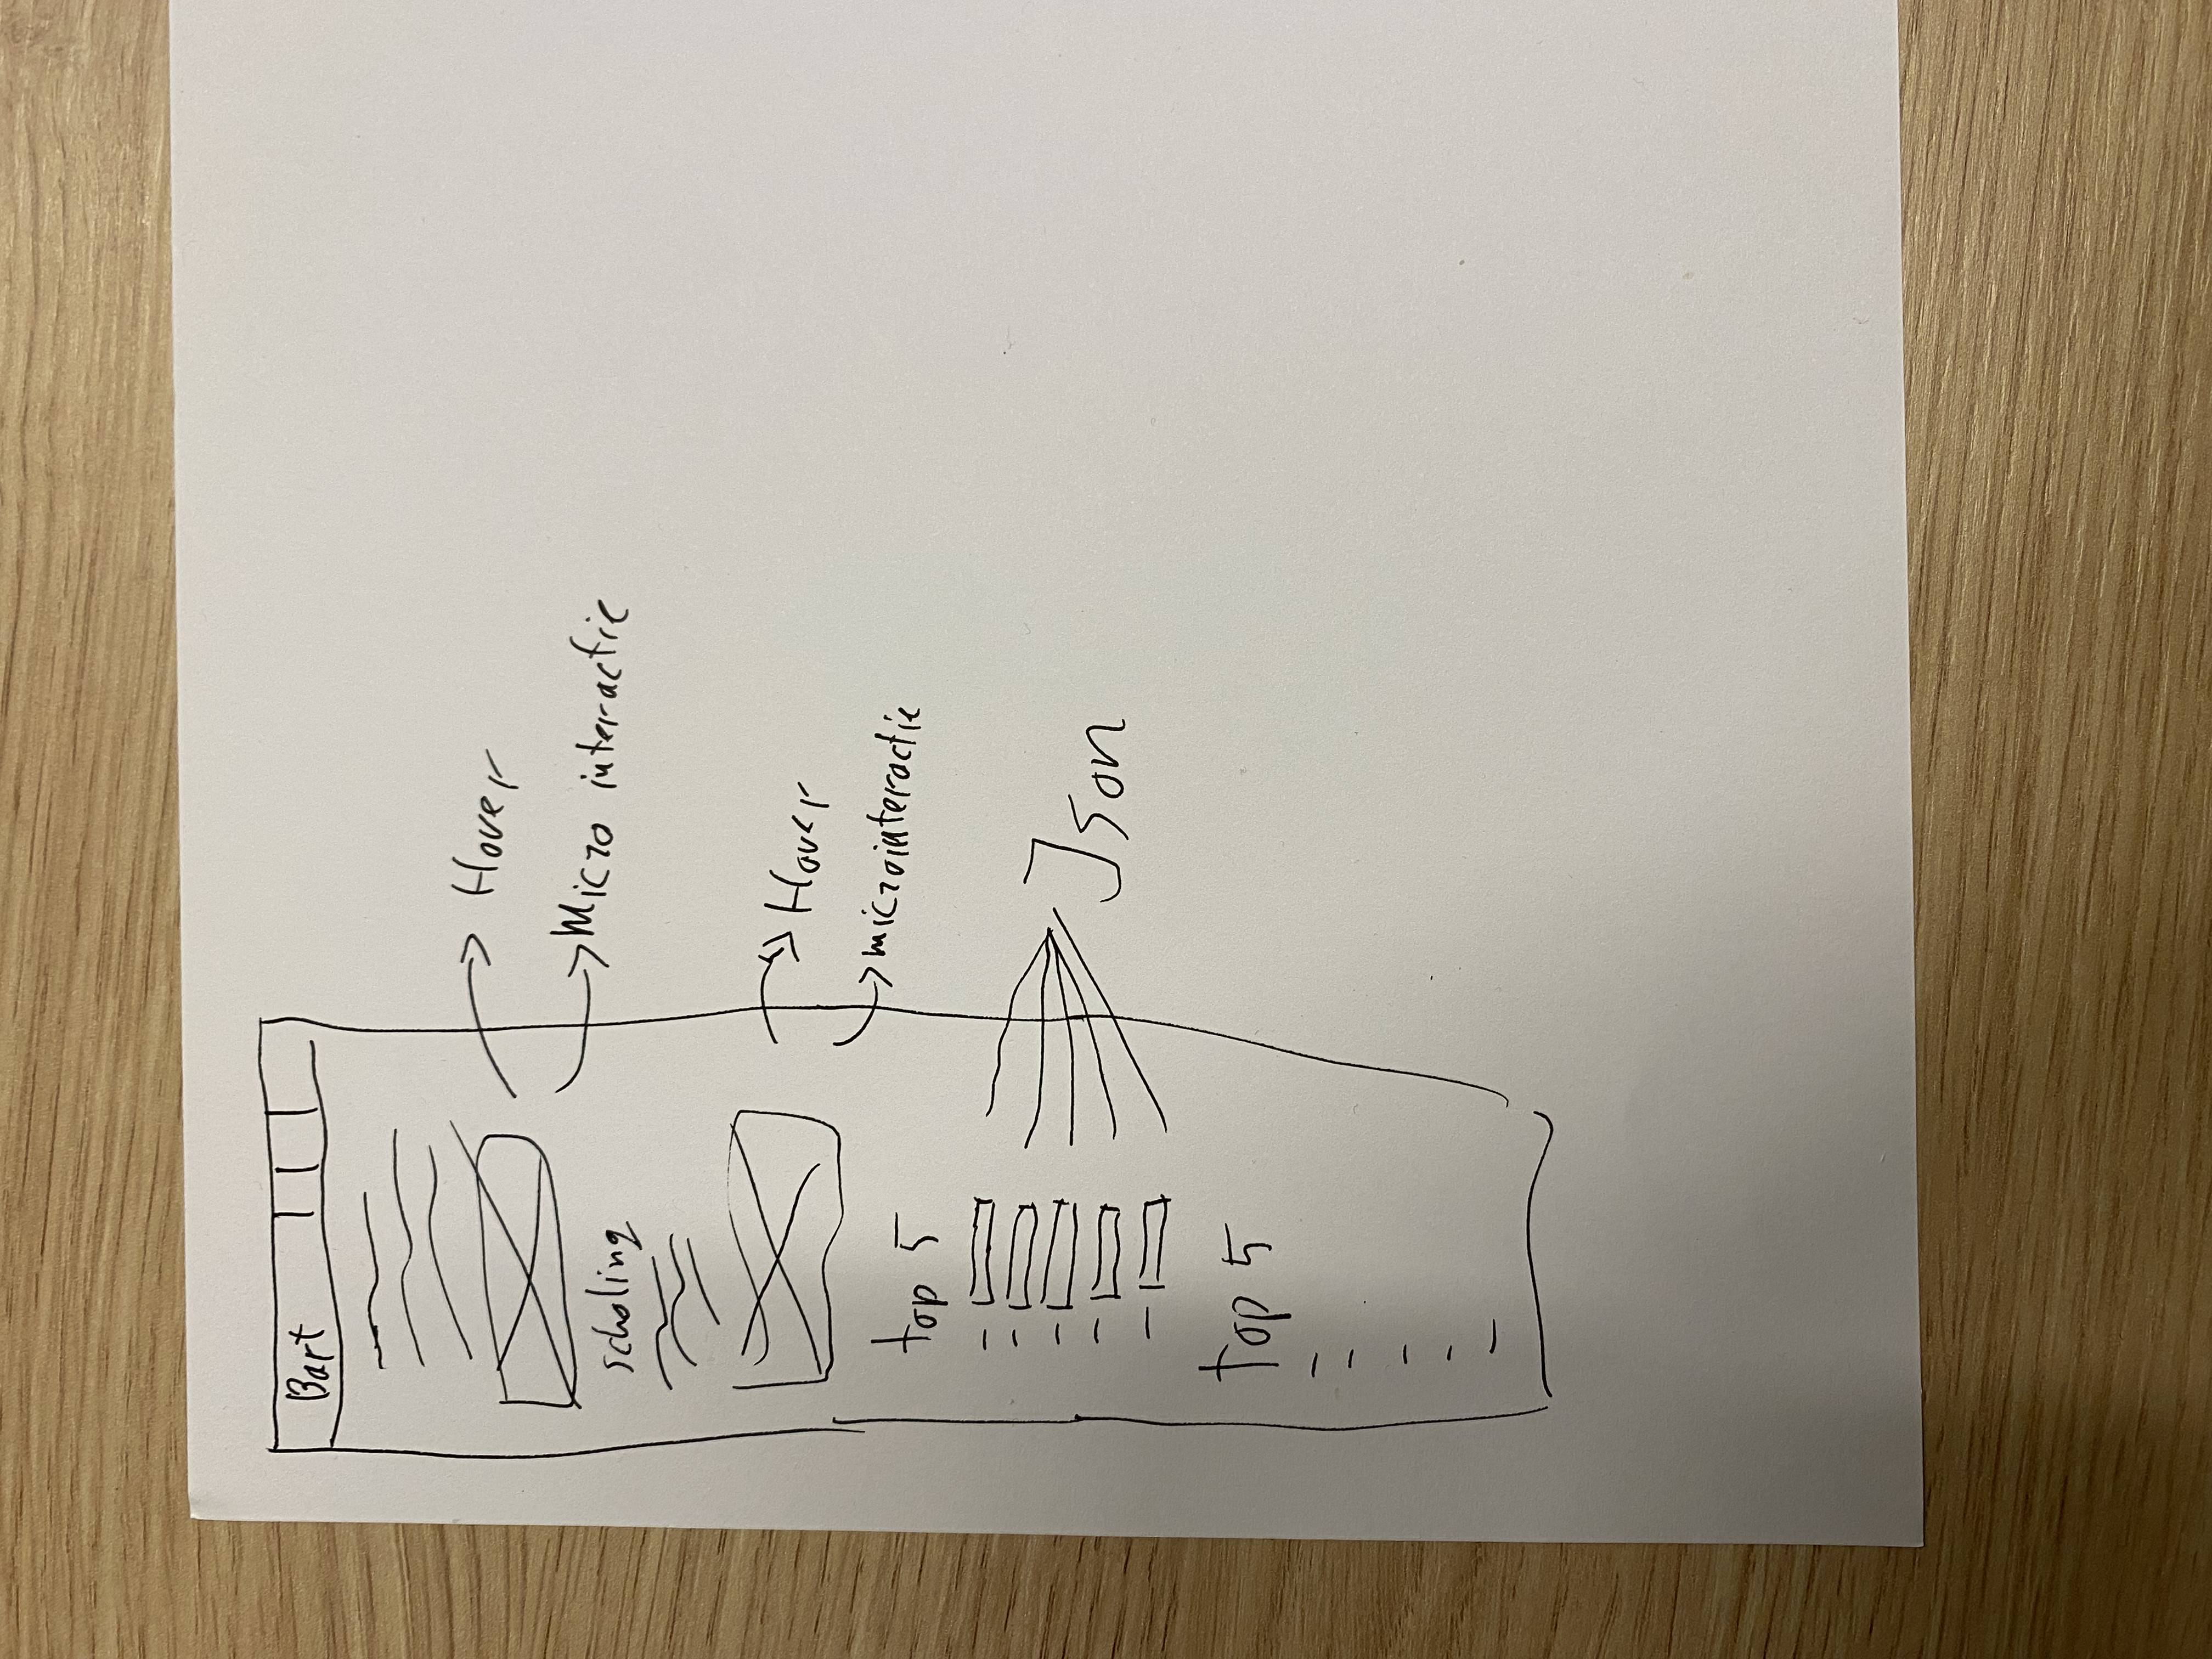 Bart
Hover
Micro interactie
scholing
Hover
microinteractie
top 5
Json
top 5